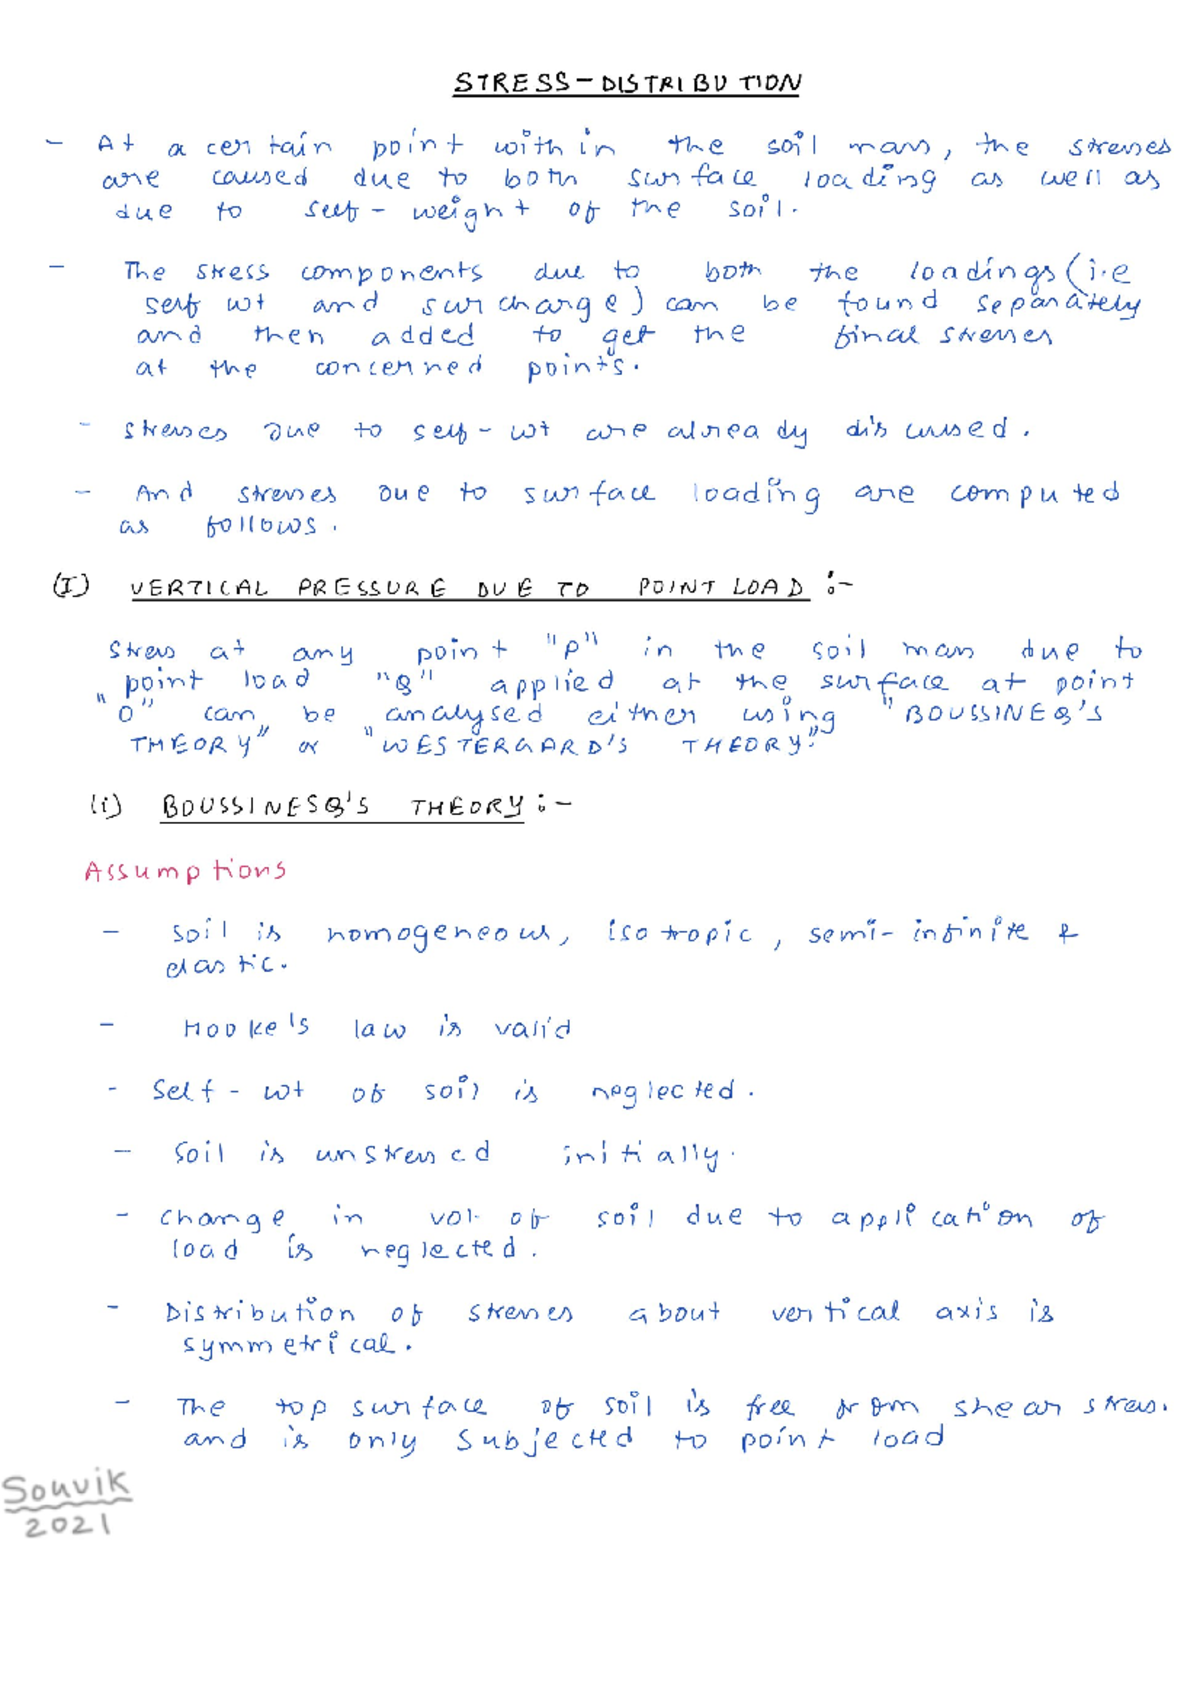 STRESS-DISTRIBUTION
- At a certain point within the soil mass, the stresses
are caused due to both surface loading as well as
due to self-weight of the soil.
- The stress components due to both the loadings (i.e
self wt and surcharge) can be found separately
and then added to get the final stresses
at the concerned points.
- Stresses due to self-wt are already discussed.
- And stresses due to surface loading are computed
as follows.
(I) VERTICAL PRESSURE DUE TO POINT LOAD :-
Stress at any point "P" in the soil mass due to
point load "Q" applied at the surface at point
"O" can be analysed either using "BOUSSINEQ'S
THEORY" or "WESTERGARD'S THEORY."
(i) BOUSSINESQ'S THEORY :-
Assumptions
- Soil is homogeneous, isotropic, semi-infinite &
elastic.
- Hooke's law is valid
- Self-wt of soil is neglected.
- Soil is unstressed initially.
- Change in vol. of soil due to application of
load is neglected.
- Distribution of stresses about vertical axis is
symmetrical.
- The top surface of soil is free from shear stress.
and is only subjected to point load
Souvik
2021